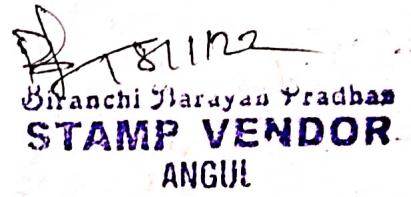 18/1/22
Biranchi Narayan Pradhan
STAMP VENDOR
ANGUL